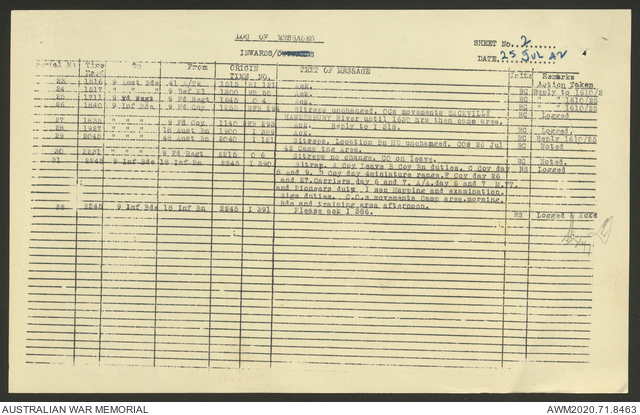 LOG OF MESSAGES
INWARDS/
SHEET No. 2
DATE. 25 JUL 42
Serial No. Time Recd To From ORIGIN TIME NO. TEXT OF MESSAGE Remarks Action Taken
23 1516 9 Aust Bde 1516 121 Ack. RC Reply to 1615/25
24 1517 " " " 9 Def Pl 1500 50 Ack. RC " " 1610/25
25 1711 9 Fd Regt 1645 O 4 Ack. RC " " 1610/25
26 1840 9 Inf Bde 9 Fd Coy 1255 Sitreps unchanged. COs movements SACKVILLE RC Logged
HAWKESBURY River until 1630 hrs then camp area.
27 1835 " " " 9 Fd Coy 1140 Ack. Reply to I 318. RC Logged.
28 1927 " " " 18 Aust Bn 1900 I 389 Ack. RC Reply 1810/25
29 2045 " " " 20 Aust Bn 2040 I 121 Sitreps. Location Bn HQ unchanged. COs 26 Jul RC Noted
42 Camp tng Area.
30 2231 " " 9 Fd Regt 2215 O 6 Sitreps no change. CO on leave. RC Noted.
31 2245 9 Inf Bde 18 Inf Bn 2245 I 390 Sitrep. A Coy Leave B Coy Bn duties. C Coy day RS Logged
6 and 9. D Coy day 4miniature range. Coy day 26
and 27. Carriers day 6 and 7. A/A. day 6 and 7 M.TT.
and Pioneers duty. I sec Mapping and examination.
Sigs duties. C.O.s movements Camp area. morning.
Bde and training area afternoon.
32 2245 9 Inf Bde 18 Inf Bn 2245 I 391 Please ack I 386. RS Logged & Ackd
AUSTRALIAN WAR MEMORIAL
AWM2020.71.8463